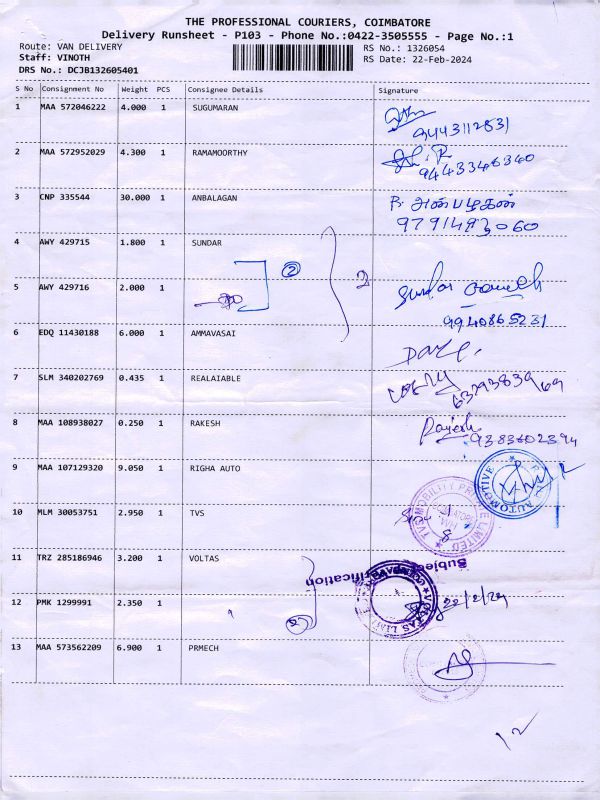 THE PROFESSIONAL COURIERS, COIMBATORE
Delivery Runsheet - P103 - Phone No.:0422-3505555 - Page No.:1
Route: VAN DELIVERY
RS No.: 1326054
Staff: VINOTH
RS Date: 22-Feb-2024
DRS No.: DCJB132605401
S No Consignment No Weight PCS Consignee Details Signature
1 MAA 572046222 4.000 1 SUGUMARAN
9443112831
2 MAA 572952029 4.300 1 RAMAMOORTHY
9443346340
3 CNP 335544 30.000 1 ANBALAGAN
P. அன்பழகன்
9791493060
4 AWY 429715 1.800 1 SUNDAR
2 2
5 AWY 429716 2.000 1
Sundar
9940865231
6 EDQ 11430188 6.000 1 AMMAVASAI
7 SLM 340202769 0.435 1 REALAIABLE
6379383969
8 MAA 108938027 0.250 1 RAKESH
9383602394
9 MAA 107129320 9.050 1 RIGHA AUTO
AUTOMOTIVE
10 MLM 30053751 2.950 1 TVS
TVS MOBILITY PRIVATE LIMITED
11 TRZ 285186946 3.200 1 VOLTAS
VOLTAS LIMITED
12 PMK 1299991 2.350 1
22/2/24
13 MAA 573562209 6.900 1 PRMECH
12